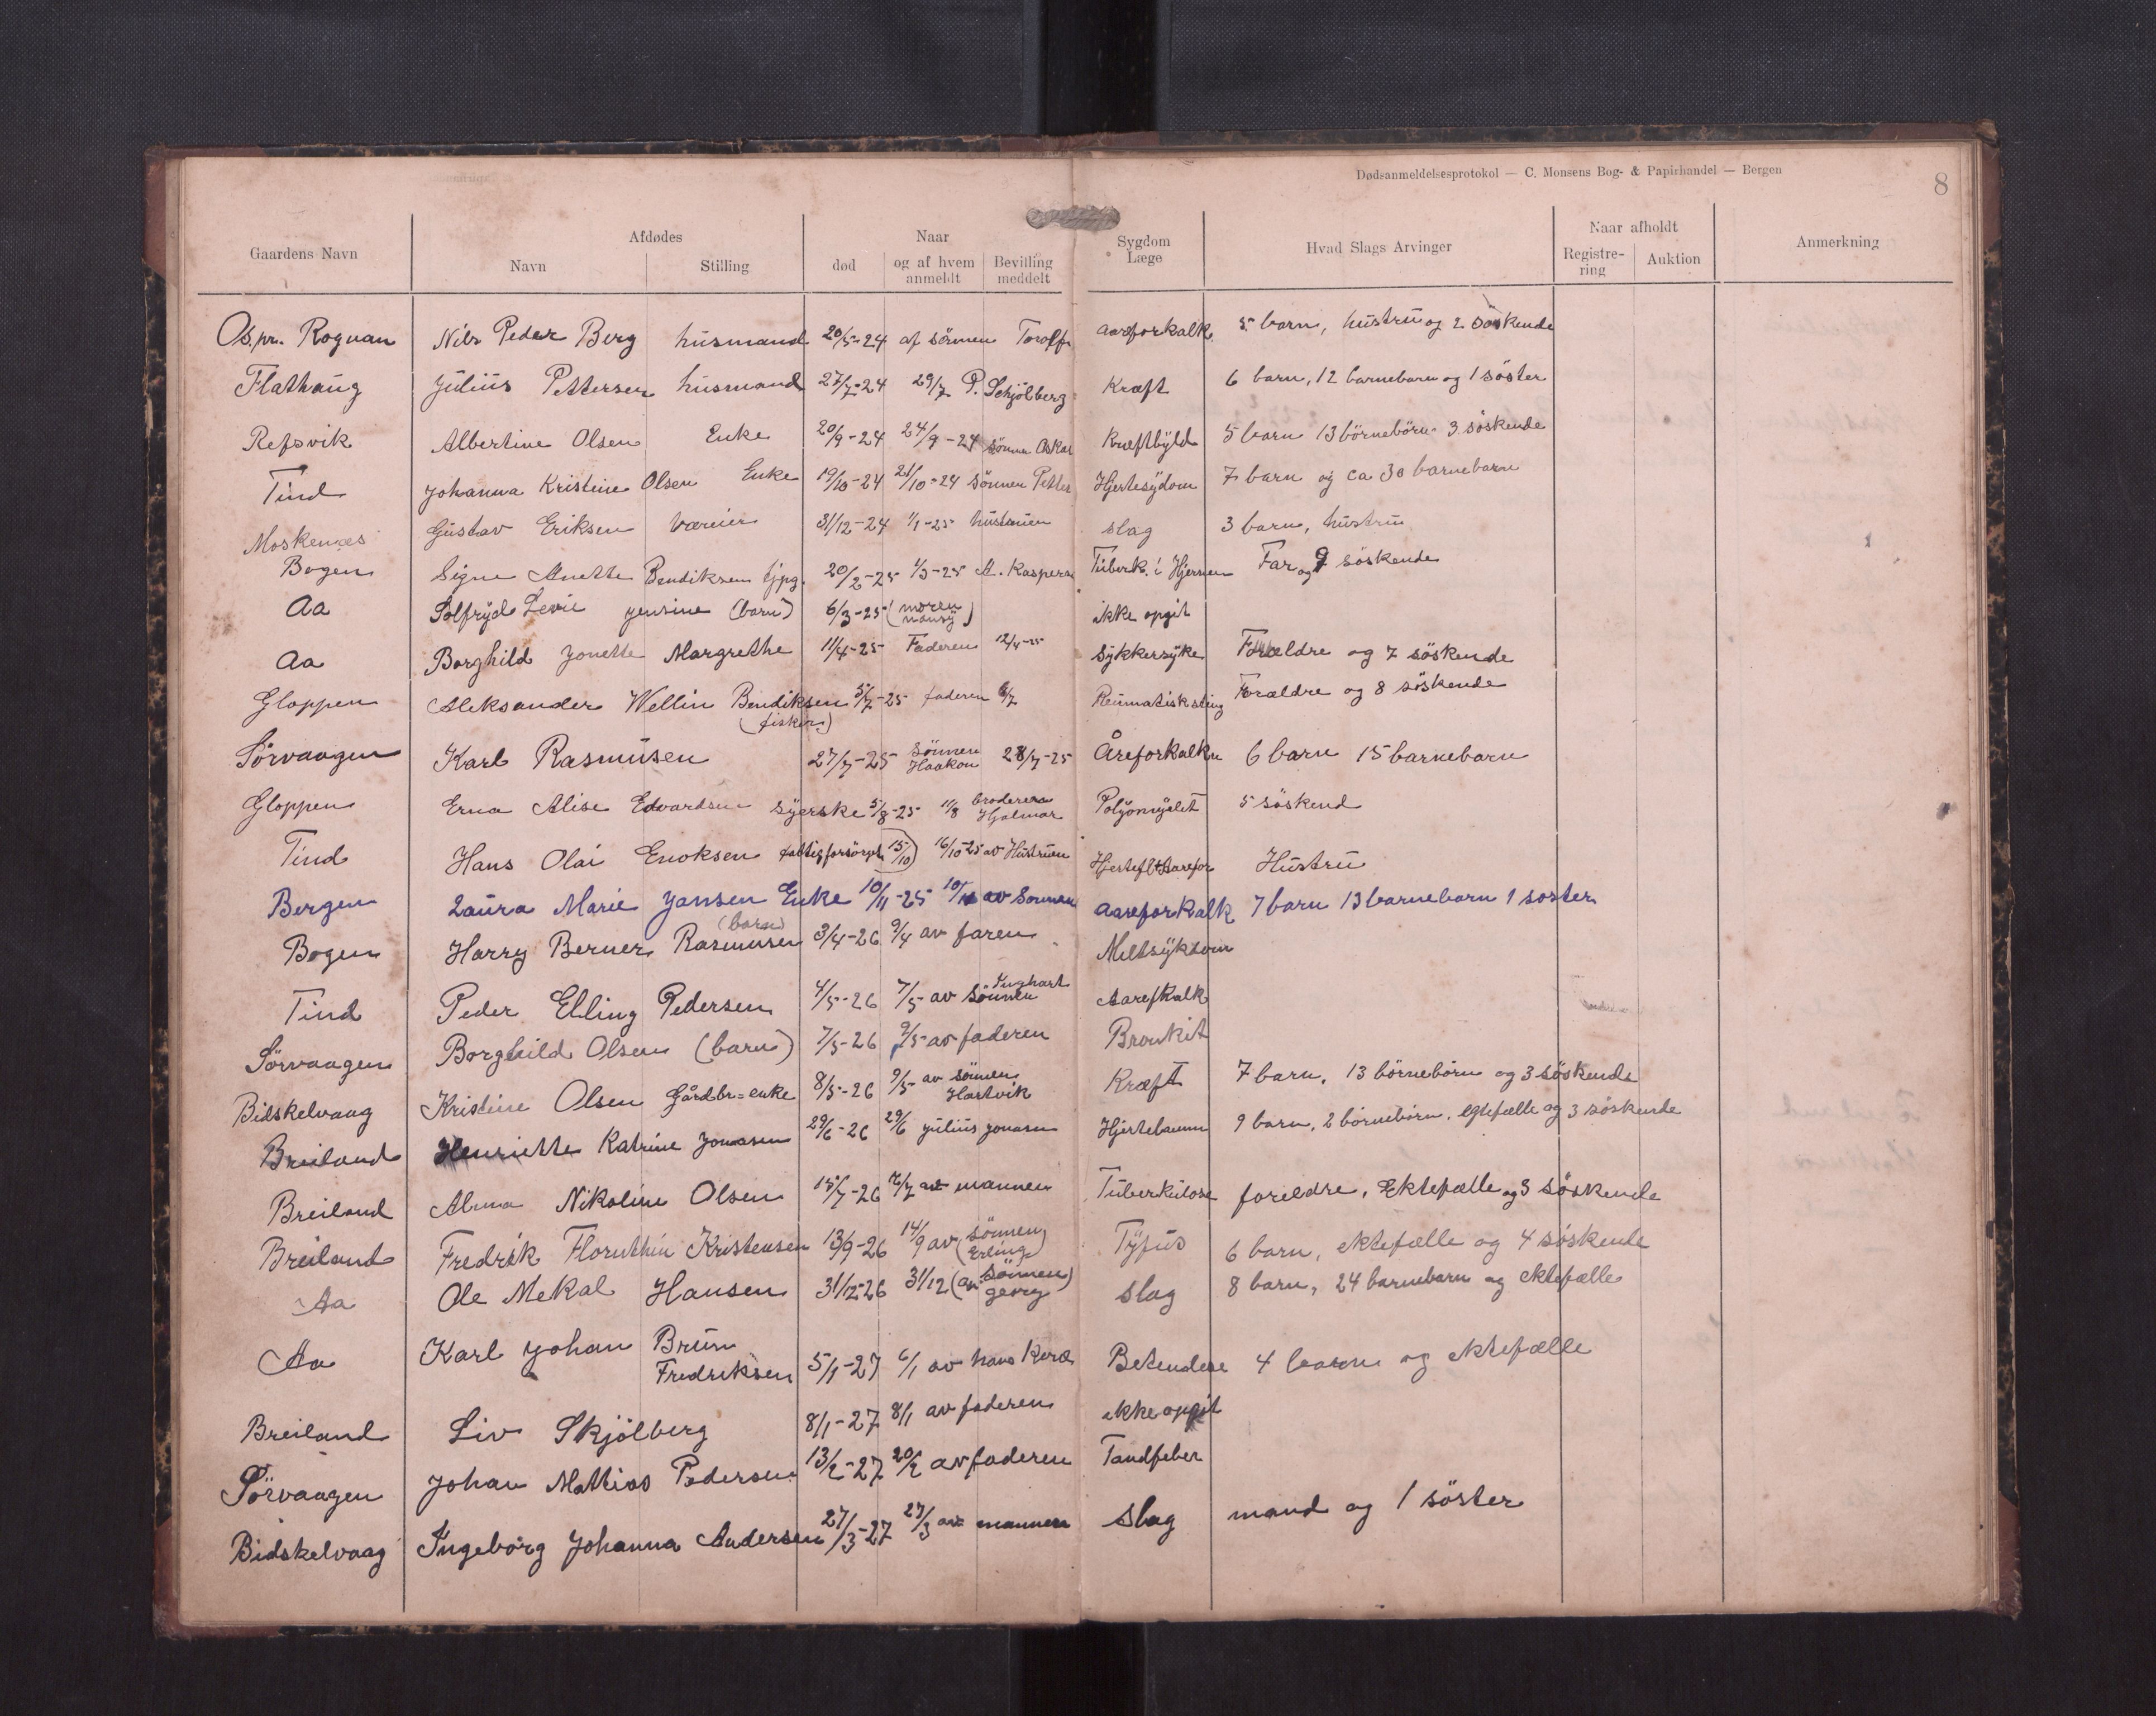 Dødsanmeldelsesprotokol — C. Monsens Bog- & Papirhandel — Bergen
8
Gaardens Navn Afdødes Navn Stilling Naar død og af hvem anmeldt Bevilling meddelt Sygdom Læge Hvad Slags Arvinger Naar afholdt Registre-ring Auktion Anmerkning
Os. pr. Rognan Nils Peder Berg husmand 20/5-24 af sönnen Torolf aareforkalk. 5 barn, hustru og 2 söskende
Flathaug Julius Pettersen husmand 27/7-24 29/7 P. Schjölberg Kræft 6 barn, 12 barnebarn og 1 söster
Refsvik Albertine Olsen Enke 20/9-24 24/9-24 sönnen Oskar Kræftbyld 5 barn 13 börnebörn 3 söskende
Tind Johanna Kristine Olsen Enke 19/10-24 21/10-24 sönnen Petter Hjertesydom 7 barn og ca 30 barnebarn
Moskenæs Gustav Eriksen Væreier 31/12-24 1/1-25 hustruen slag 3 barn, hustru
Bogen Signe Anette Bendiksen tjpg. 20/2-25 1/3-25 A. Kaspersen Tuberk. i Hjernen Far og 9 söskende
Aa Solfryd Levie Jensine (barn) 6/3-25 (moren ) ikke opgit
Aa Borghild Jonette Margrethe 11/4-25 Faderen 12/4-25 Sykkersyke Forældre og 7 söskende
Gloppen Aleksander Wellin Bendiksen 5/7-25 faderen 6/7 Reumatisk sting Forældre og 8 söskende
(fisker)
Sörvaagen Karl Rasmusen 27/7-25 Sönnen Haakon 28/7-25 Åreforkalkn 6 barn 15 barnebarn
Gloppen Erna Alise Edvardsen Syerske 5/8-25 11/8 broderen Hjalmar Polyomyelit 5 söskend
Tind Hans Olai Enoksen fattigforsörget 15/10) 16/10-25 av Hustruen Hjertef & Aarefor Hustru
Bergen Laura Marie Jansen Enke 10/11-25 10/11 av Sonnen aareforkalk 7 barn 13 barnebarn 1 soster
Bogen Harry Berner Rasmusen (barn) 3/4-26 9/4 av faren Meltsykdom
Tind Peder Elling Pedersen 4/5-26 7/5 av Sönnen Inghart Aarefkalk
Sörvaagen Borghild Olsen (barn) 7/5-26 9/5 av faderen Bronkit
Bidskelvaag Kristine Olsen Gårdbr=enke 8/5-26 9/5 av sönnen Hartvik Kræft 7 barn, 13 börnebörn og 3 söskende
Breiland Henriette Katrine Jonasen 29/6-26 29/6 Julius Jonasen Hjertelamm 9 barn, 2 börnebörn, egtefælle og 3 söskende
Breiland Alma Nikoline Olsen 15/7-26 av mannen Tuberkulose foreldre, Ektefælle og 3 söskende
Breiland Fredrik Kristensen 13/9-26 14/9 av (sönnen Erling) Tyfus 6 barn, ektefælle og 4 söskende
Aa Ole Mekal Hansen 31/12-26 31/12 (av sönnen Georg) Slag 8 barn, 24 barnebarn og ektefælle
Aa Karl Johan Brun Fredriksen 5/1-27 6/1 av hans Betendese 4 barn og ektefælle
Breiland Liv Skjölberg 8/1-27 8/1 av faderen ikke opgit
Sörvaagen Johan Mattias Pedersen 13/2-27 20/2 av faderen Tandfeber
Bidskelvaag Ingeborg Johanna Andersen 27/3-27 27/3 av mannen Slag mand og 1 söster